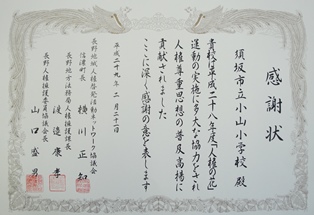 感謝状
須坂市立小山小学校 殿
貴校は平成二十八年度「人権の花」
運動の実施に多大な協力をされ
人権尊重思想の普及高揚に
貢献されました
ここに深く感謝の意を表します
平成二十九年 二月二十日
長野地域人権啓発活動ネットワーク協議会
信濃町長 横川正知
長野地方法務局人権擁護課長
渡邉康孝
長野人権擁護委員協議会長
山口盛男